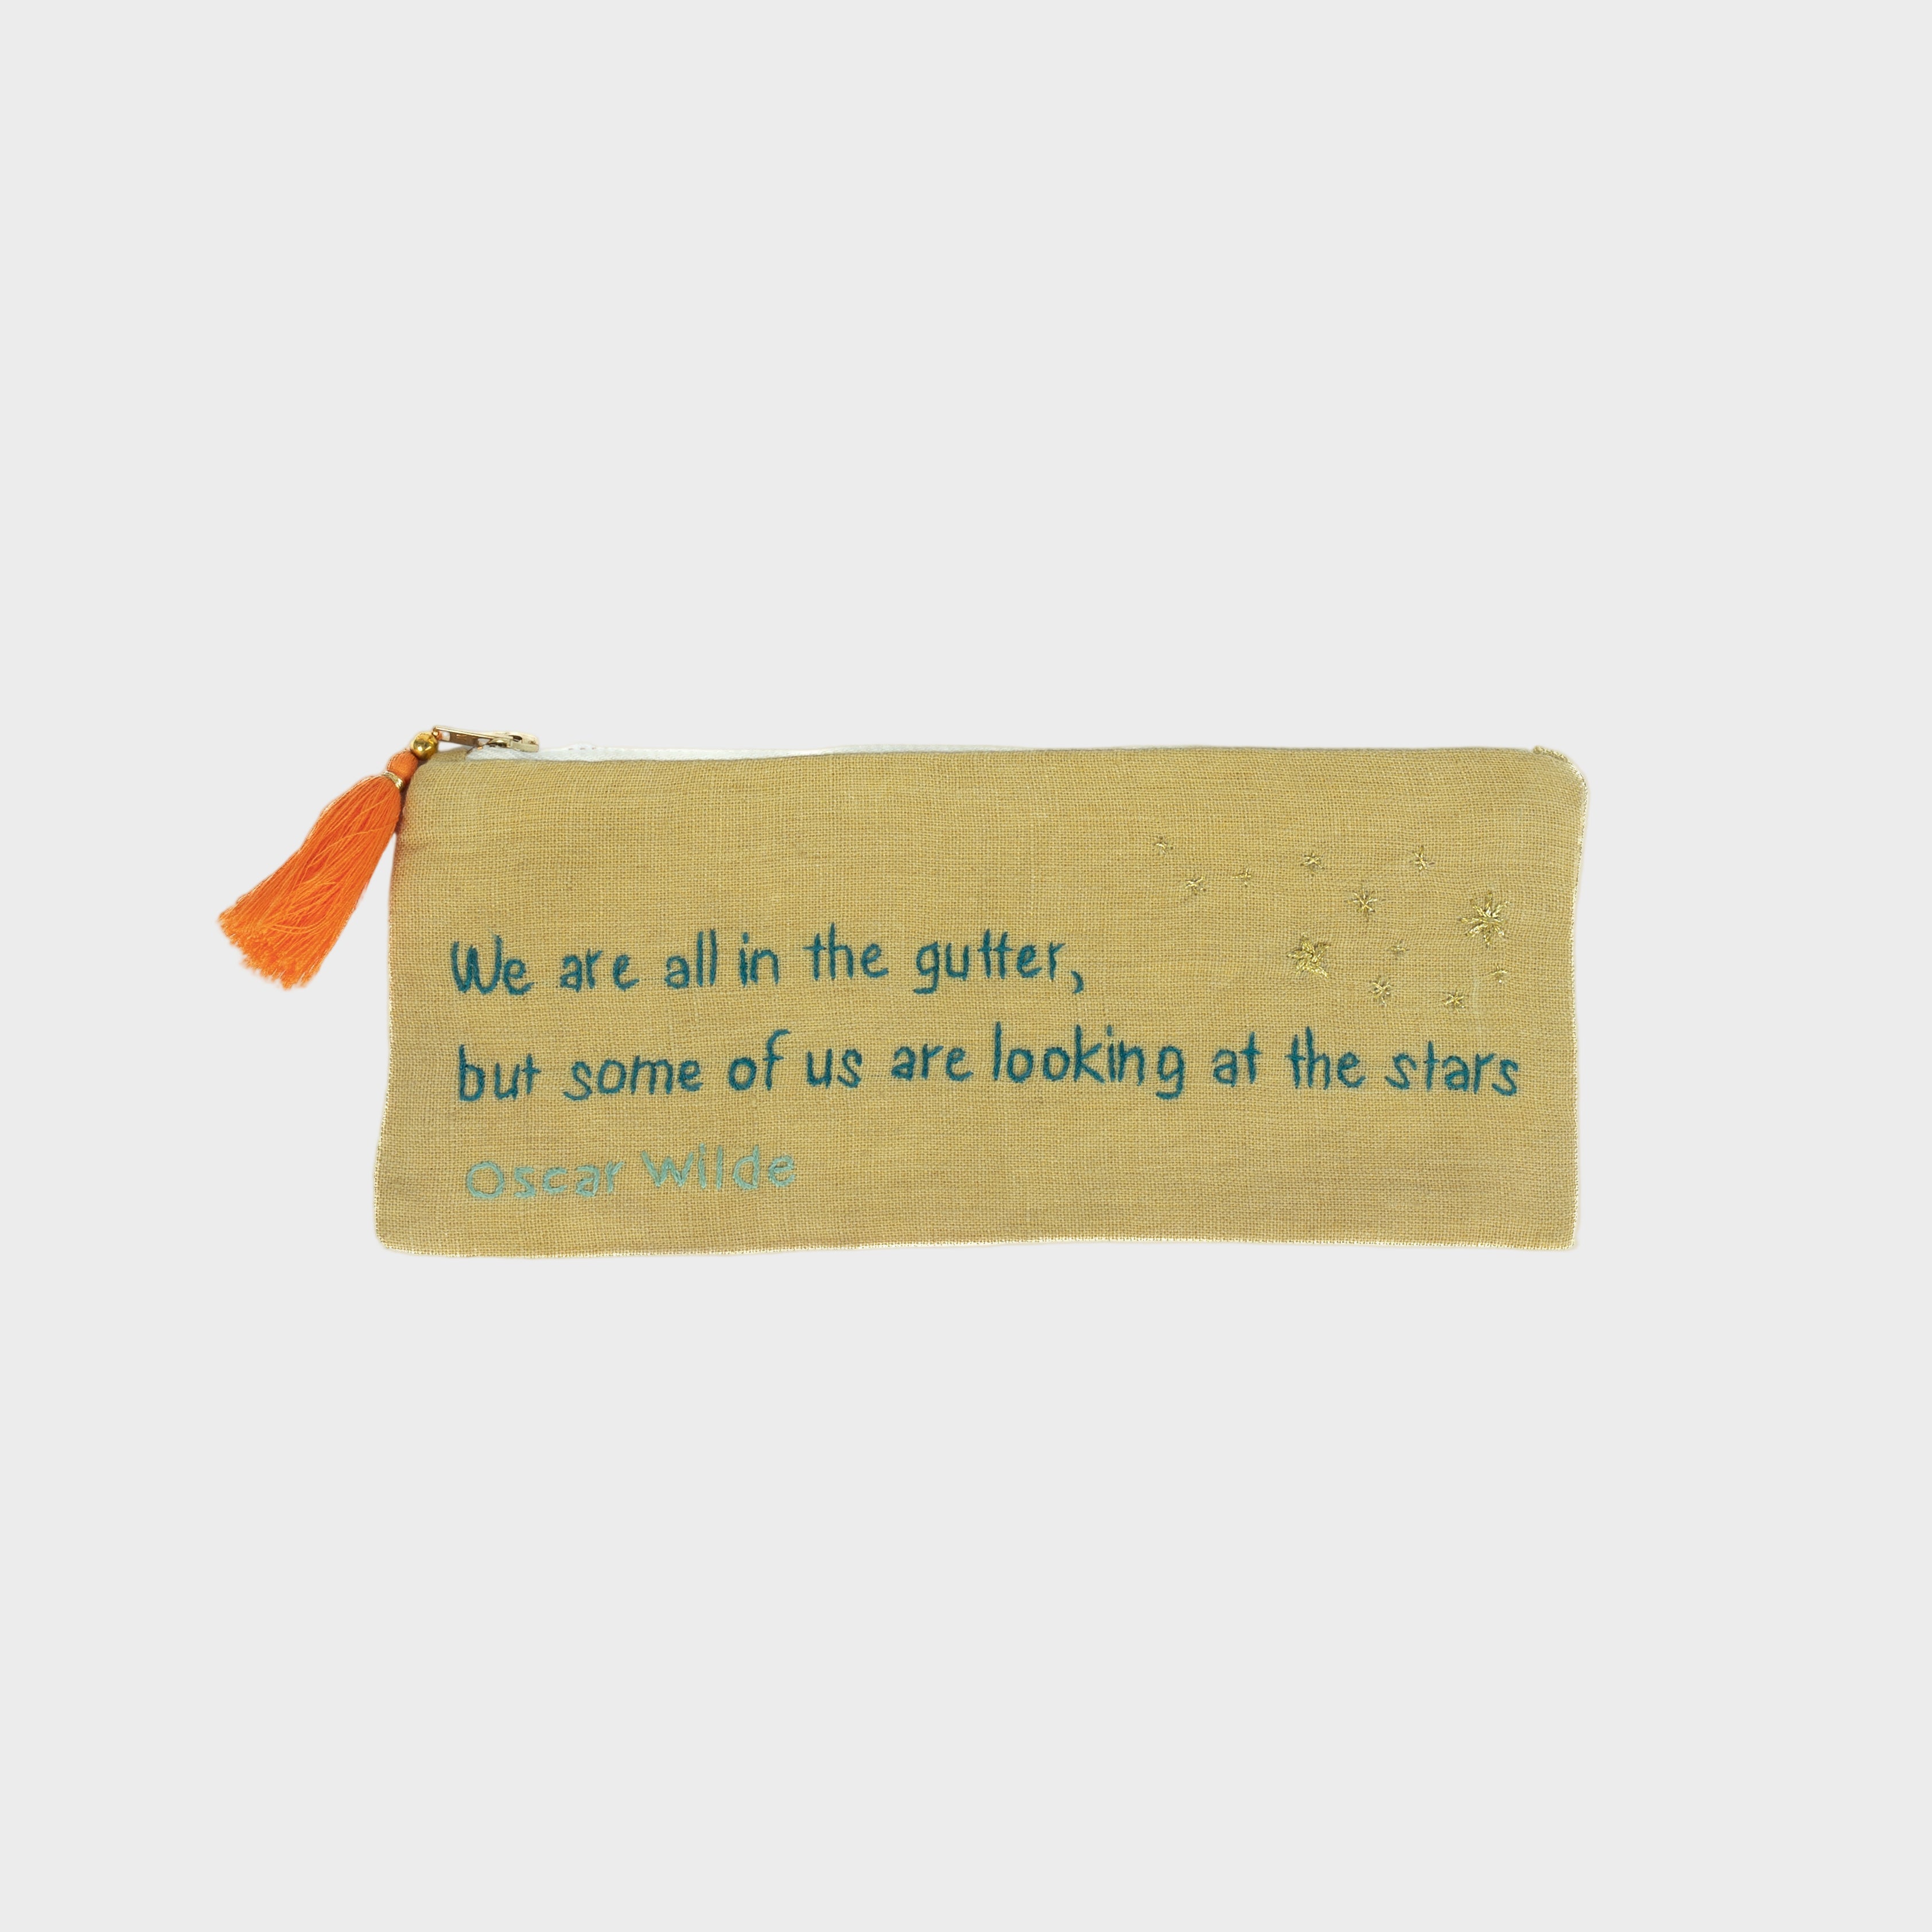 We are all in the gutter,
but some of us are looking at the stars
Oscar Wilde